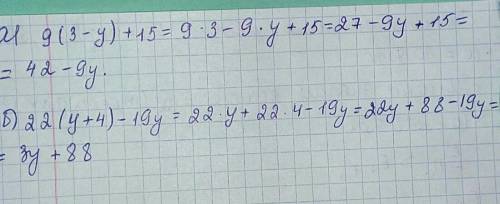 а) 9(3-y)+15=9·3-9·y+15=27-9y+15=
=42-9y.
б) 22(y+4)-19y=22·y+22·4-19y=22y+88-19y=
=3y+88